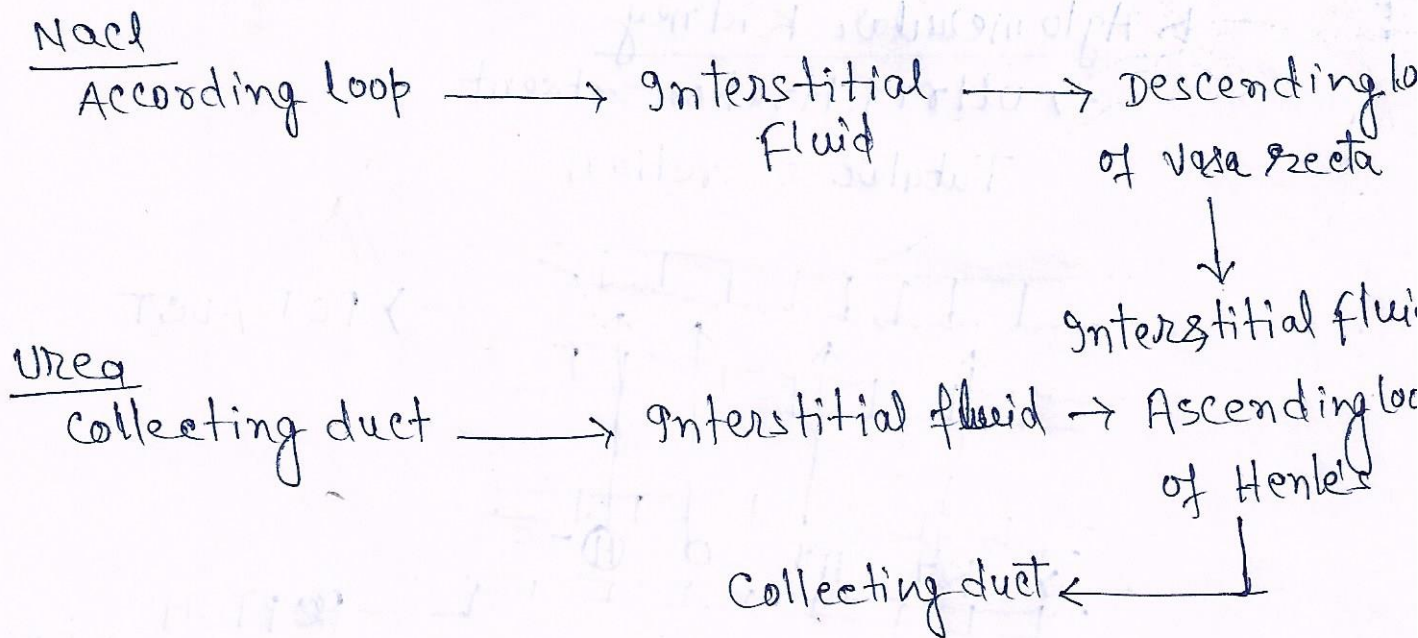 Nacl
According loop → Interstitial → Descending lo
Fluid of vasa recta
↓
Interstitial flui
Urea
Collecting duct → Interstitial fluid → Ascending loo
of Henle's
Collecting duct ←